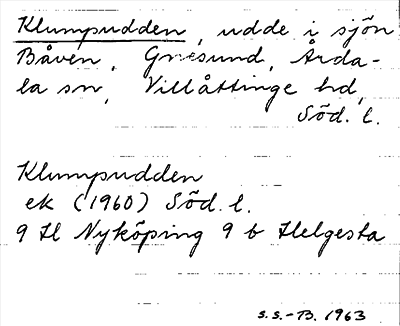 Klumpudden, udde i sjön
Båven, Gnesund, Årda-
la sn, Villåttinge hd,
Söd. l.
Klumpudden
ek (1960) Söd. l.
9 H Nyköping 9 b Helgesta
S.S.-B. 1963